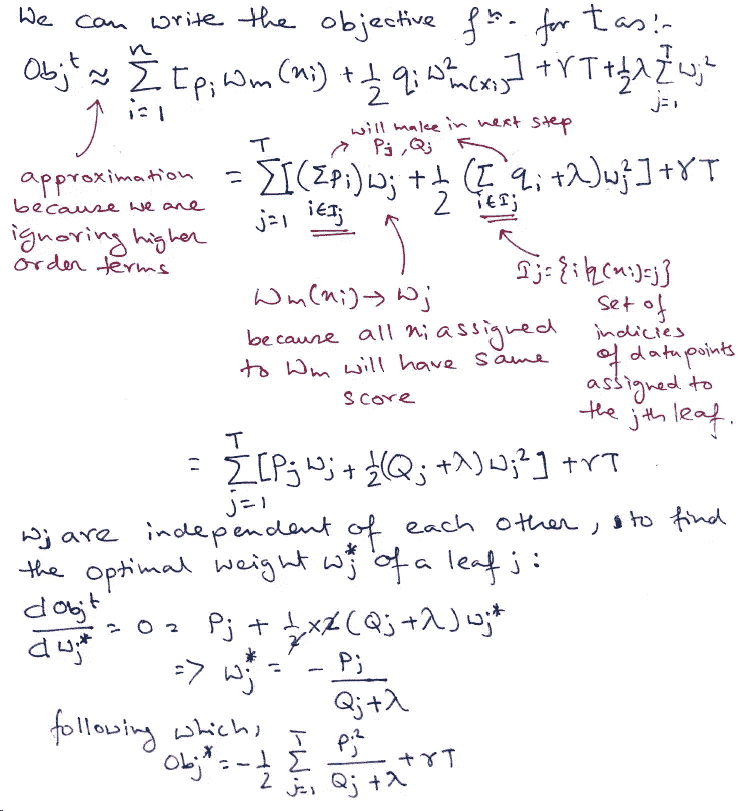 We can write the objective fⁿ. for t as:-
Objᵗ ≈ Σ_{i=1}^{n} [pᵢ Wm(xi) + 1/2 qᵢ W²m(xi)] + γT + 1/2 λ Σ_{j=1}^{T} wj²
will make in next step
Pj, Qj
approximation
because we are
ignoring higher
order terms
= Σ_{j=1}^{T} [(Σ_{i∈Ij} pi) wj + 1/2 (Σ_{i∈Ij} qi + λ) wj²] + γT
Wm(xi) → Wj
because all xi assigned
to Wm will have same
score
Ij = {i|q(xi)=j}
set of
indicies
of datapoints
assigned to
the jth leaf.
= Σ_{j=1}^{T} [Pj wj + 1/2 (Qj + λ) wj²] + γT
wj are independent of each other, to find
the optimal weight wj* of a leaf j:
d objᵗ / d wj* = 0 = Pj + 1/2 × 2 (Qj + λ) wj*
=> wj* = - Pj / Qj + λ
following which,
Obj* = - 1/2 Σ_{j=1}^{T} Pj² / Qj + λ + γT